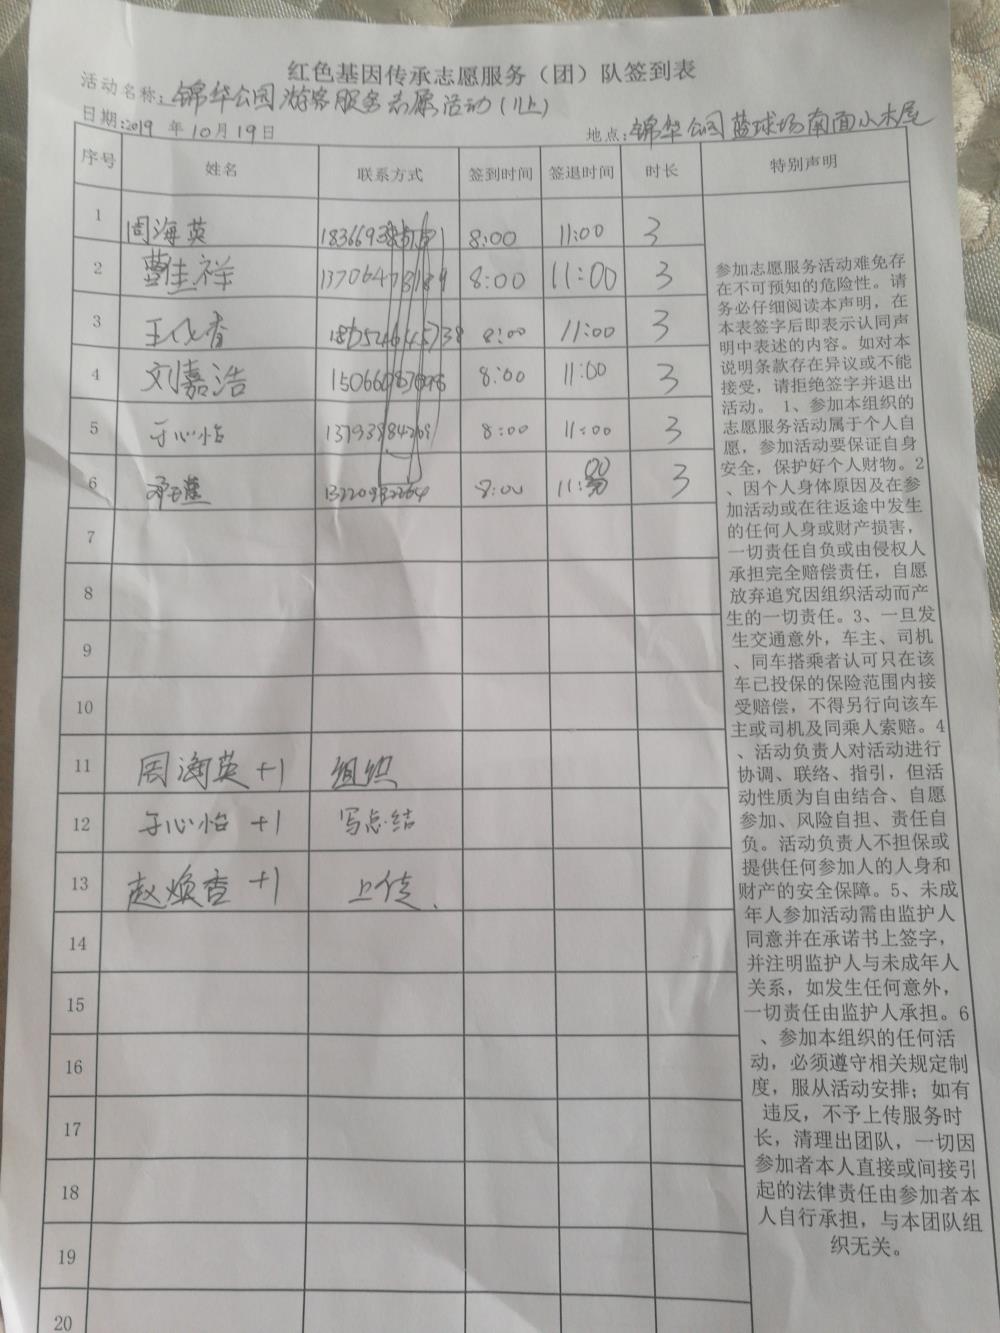 红色基因传承志愿服务（团）队签到表
活动名称：锦华公园游客服务志愿活动（上）
日期：2019年10月19日 地点：锦华公园蓝球场南面小木屋
序号 姓名 联系方式 签到时间 签退时间 时长 特别声明
1 周海英 8:00 11:00 3
2 曹佳祥 8:00 11:00 3
3 8:00 11:00 3
4 刘嘉浩 8:00 11:00 3
5 于心怡 8:00 11:00 3
6 8:00 11:00 3
7
8
9
10
11 周海英+1 组织
12 于心怡+1 写总结
13 赵焕香+1 上传.
14
15
16
17
18
19
20
参加志愿服务活动难免存
在不可预知的危险性。请
务必仔细阅读本声明，在
本表签字后即表示认同声
明中表述的内容。如对本
说明条款存在异议或不能
接受，请拒绝签字并退出
活动。 1、参加本组织的
志愿服务活动属于个人自
愿，参加活动要保证自身
安全，保护好个人财物。2
、因个人身体原因及在参
加活动或在往返途中发生
的任何人身或财产损害，
一切责任自负或由侵权人
承担完全赔偿责任，自愿
放弃追究因组织活动而产
生的一切责任。3、一旦发
生交通意外，车主、司机
、同车搭乘者认可只在该
车已投保的保险范围内接
受赔偿，不得另行向该车
主或司机及同乘人索赔。4
、活动负责人对活动进行
协调、联络、指引，但活
动性质为自由结合、自愿
参加、风险自担、责任自
负。活动负责人不担保或
提供任何参加人的人身和
财产的安全保障。5、未成
年人参加活动需由监护人
同意并在承诺书上签字，
并注明监护人与未成年人
关系，如发生任何意外，
一切责任由监护人承担。6
、参加本组织的任何活
动，必须遵守相关规定制
度，服从活动安排；如有
违反，不予上传服务时
长，清理出团队，一切因
参加者本人直接或间接引
起的法律责任由参加者本
人自行承担，与本团队组
织无关。